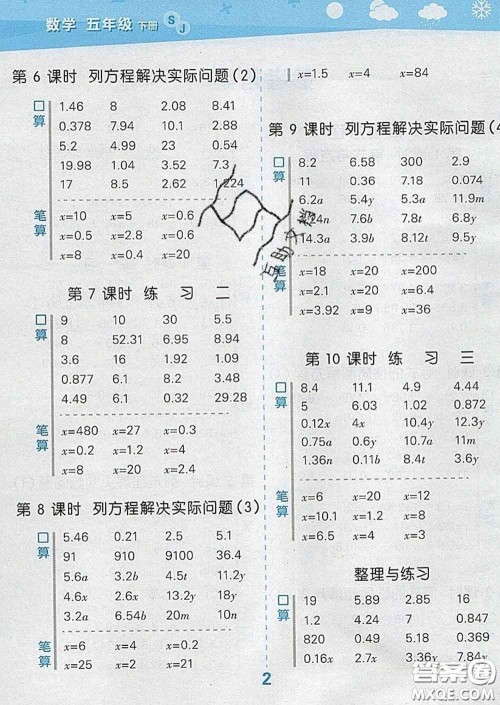 数学 五年级 下册 SJ
第 6 课时 列方程解决实际问题(2)
口算
1.46 8 2.08 8.41
0.378 7.94 10.1 2.88
5.2 4.99 23 0.54
19.98 1.04 3.52 7.3
17 8.5 2.62 1.224
笔算
x=10 x=5 x=0.6
x=0.5 x=2.8 x=0.6
x=8 x=0.4 x=20
第 7 课时 练 习 二
口算
9 10 30 5.5
8 52.31 6.95 8.94
3.6 16 1.92 3.8
0.877 6.1 8.2 3.48
4.49 6.1 0.32 29.28
笔算
x=480 x=27 x=0.3
x=0.2 x=1.2 x=4
x=8 x=20 x=2.4
第 8 课时 列方程解决实际问题(3)
口算
5.46 0.21 2.5 5.1
91 910 9100 36.4
5.6a 3.2b 4.5t 11.2y
4.6x 2.6x 13.2y 18y
3.2x 6.54b 20m 11.2x
笔算
x=6 x=4 x=2
x=25 x=2 x=21
x=1.5 x=4 x=3
第 9 课时 列方程解决实际问题(4
口算
8.2 6.58 300 2.9
11 0.36 7.18 0.074
6.2a 5.4y 5.3a 11.9m
24n 7.6b 7.8t 6.8y
14.3a 3.9b 8.12t 9.5y
笔算
x=18 x=20 x=200
x=2.1 x=20 x=6.4
x=3.92 x=9 x=36
第 10 课时 练 习 三
口算
8.4 11.1 4.9 4.44
5 6.03 1.02 0.872
0.12x 4x 10.4y 12.3x
0.75a 0.6t 10.7m 11n
1.36n 0.11b 8.4t 3.6y
笔算
x=6 x=20 x=12
x=10 x=8 x=0.9
x=6.5 x=4 x=3
整理与练习
口算
19 5.89 2.85 16
1.2 4.24 7 0.847
820 0.49 5.18 0.369
0.16x 2.7x 3.36x 7.84y
互助文档
2
答案圈
MXQE.COM